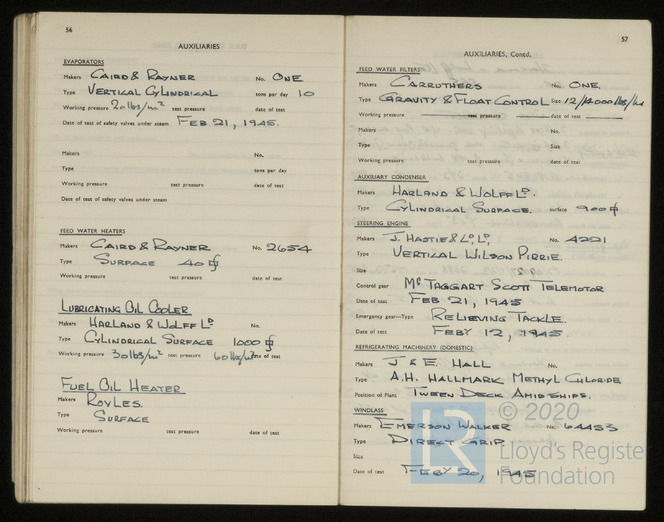 56
AUXILIARIES
EVAPORATORS
Makers CAIRD & RAYNER No. ONE
Type VERTICAL CYLINDRICAL tons per day 10
Working pressure 20 lbs/in² test pressure date of test
Date of test of safety valves under steam FEB 21, 1945.
Makers No.
Type tons per day
Working pressure test pressure date of test
Date of test of safety valves under steam
FEED WATER HEATERS
Makers CAIRD & RAYNER No. 2654
Type SURFACE 40
Working pressure test pressure date of test
LUBRICATING OIL COOLER
Makers HARLAND & WOLFF LD No.
Type CYLINDRICAL SURFACE 1000
Working pressure 30 lbs/in² test pressure 60 lbs/in² date of test
FUEL OIL HEATER
Makers ROYLES.
Type SURFACE
Working pressure test pressure date of test
57
AUXILIARIES, Contd.
FEED WATER FILTERS
Makers CARRUTHERS No. ONE.
Type GRAVITY & FLOAT CONTROL Size 12/14000 lbs/hr
Working pressure test pressure date of test
Makers No.
Type Size
Working pressure test pressure date of test
AUXILIARY CONDENSER
Makers HARLAND & WOLFF LD.
Type CYLINDRICAL SURFACE. surface 900
STEERING ENGINE
Makers J. HASTIE & Co. LD. No. 4221
Type VERTICAL WILSON PIRRIE.
Size
Control gear McTAGGART SCOTT TELEMOTOR
Date of test FEB 21, 1945
Emergency gear—Type RELIEVING TACKLE.
Date of test FEBY 12, 1945.
REFRIGERATING MACHINERY (DOMESTIC)
Makers J & E. HALL No.
Type A.H. HALLMARK METHYL CHLORIDE
Position of Plant TWEEN DECK AMIDSHIPS.
WINDLASS
Makers EMERSON WALKER No. 64453
Type DIRECT GRIP.
Size
Date of test FEBY 20, 1945
LR © 2020
Lloyd's Register
Foundation